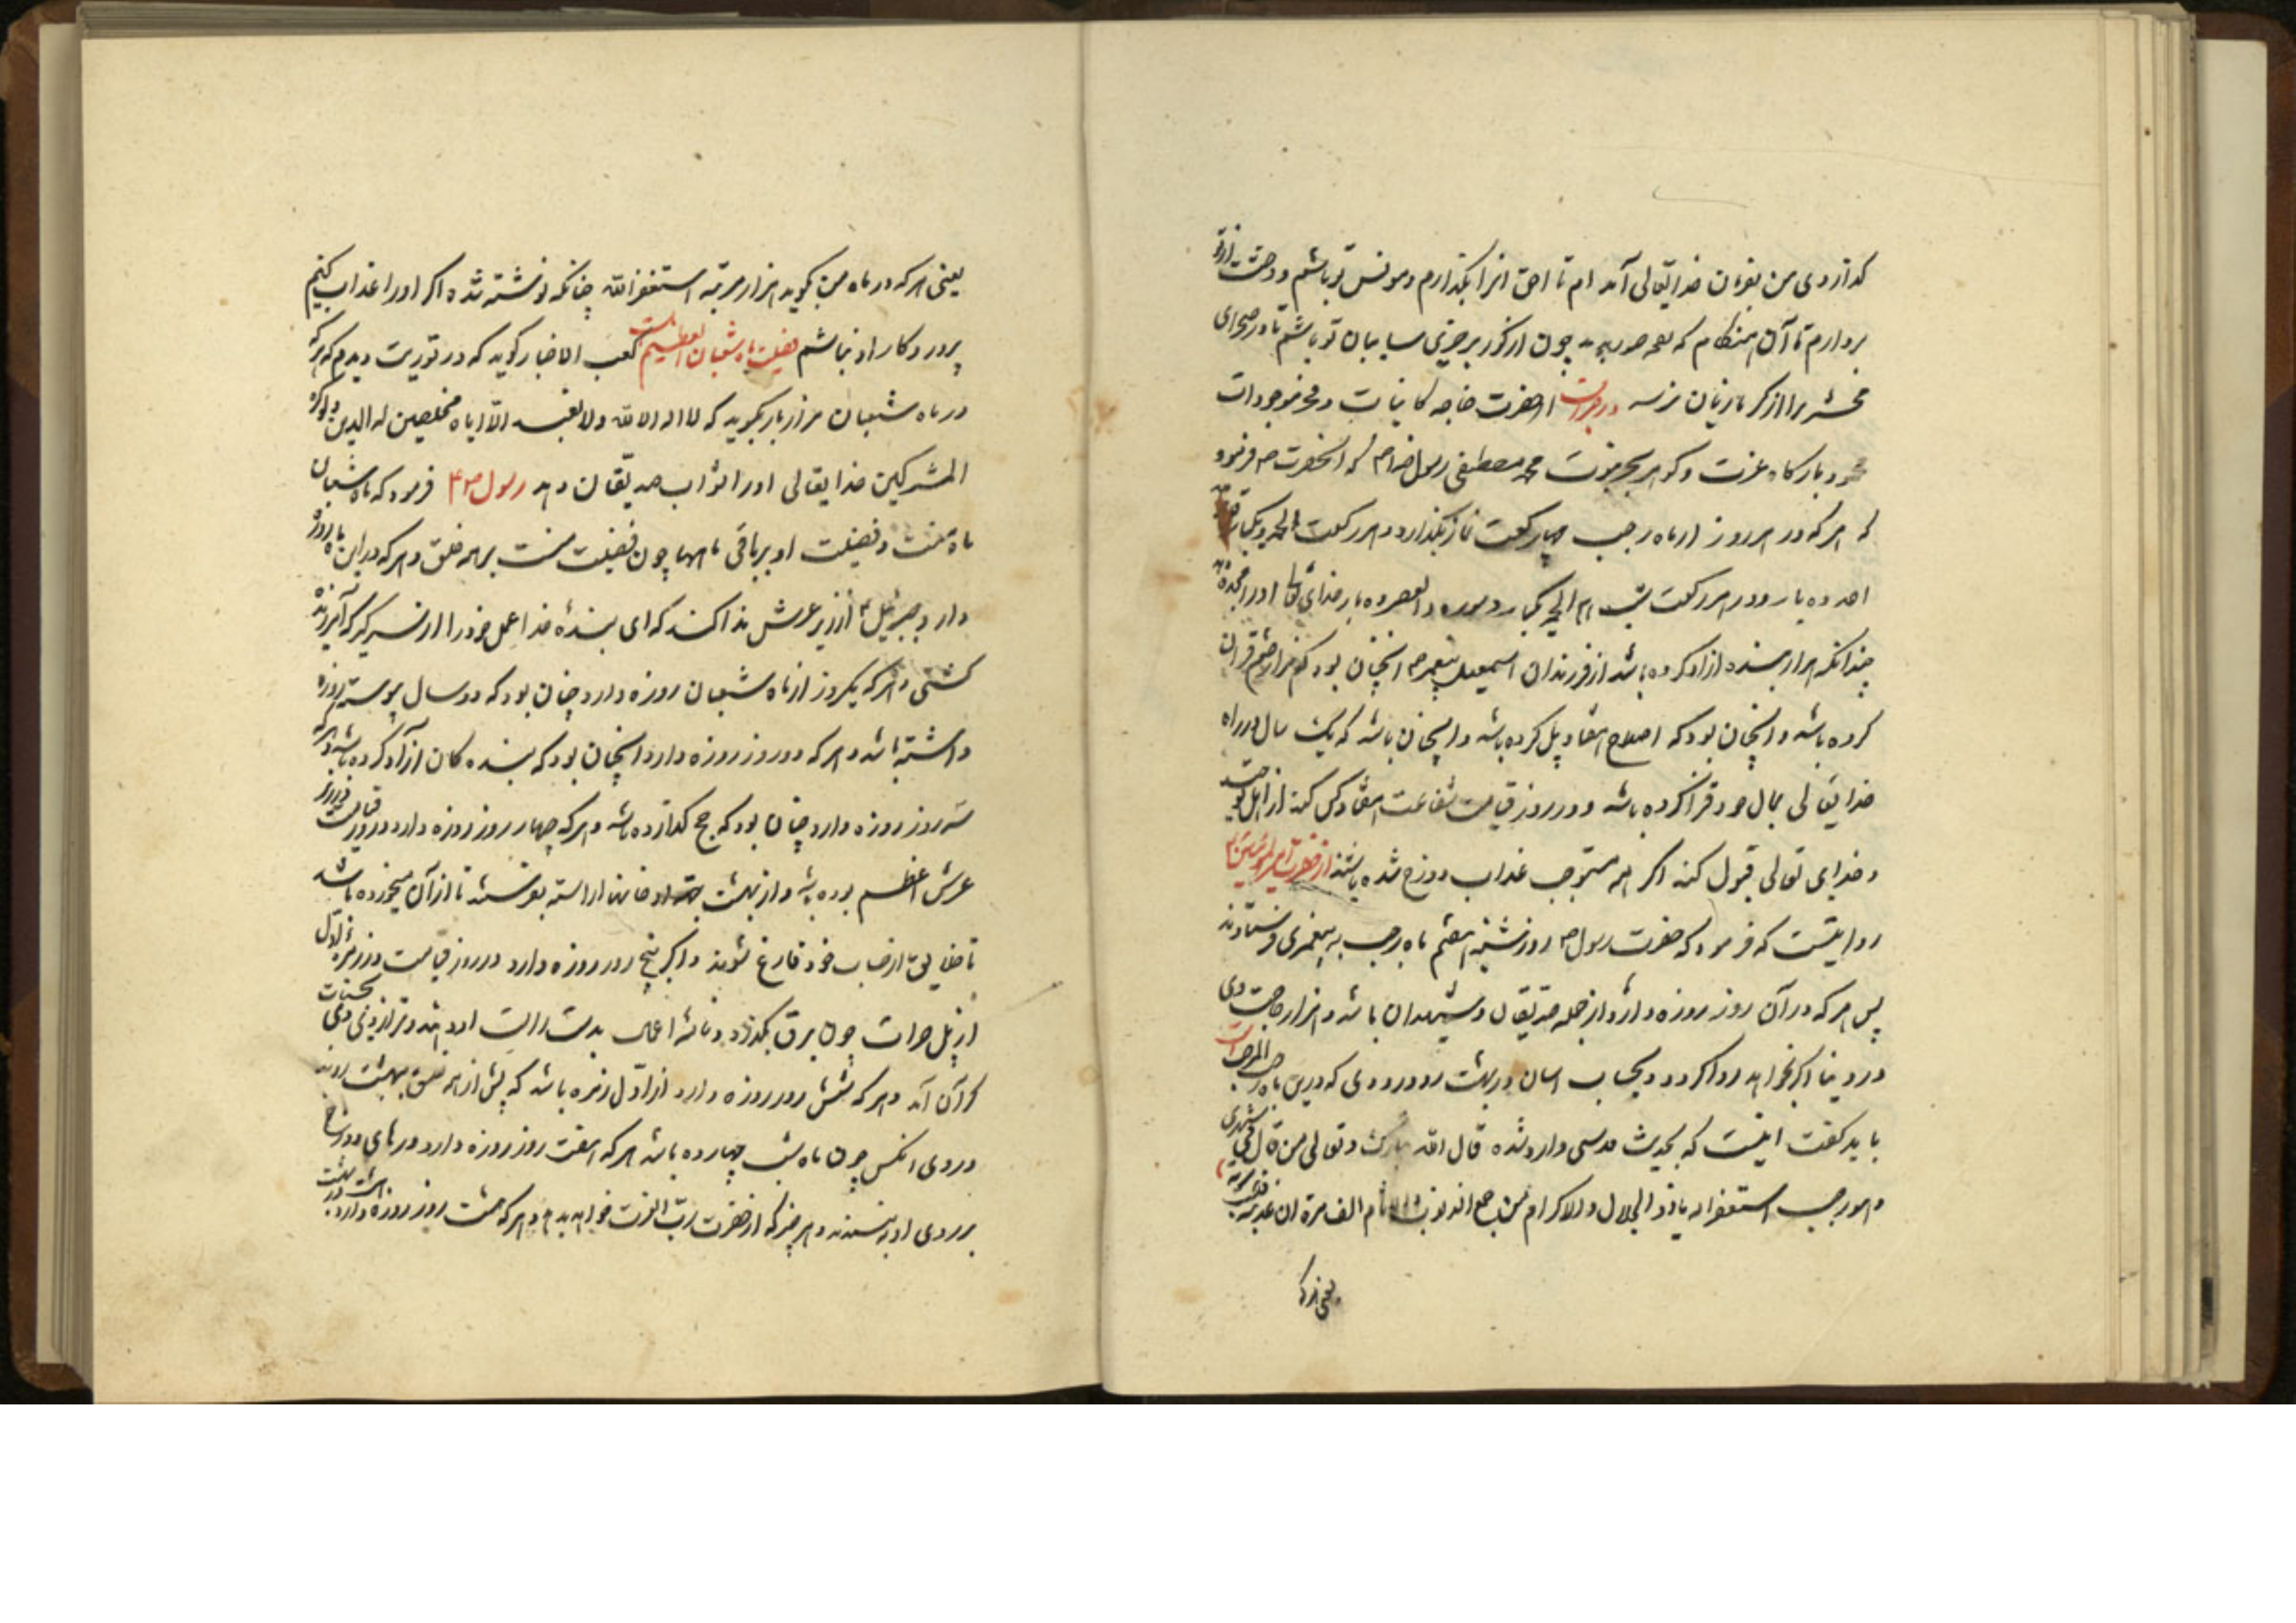 که از روی من بفرمان خدایتعالی آمده ام تا حق انرا بگذارم و مونس تو باشم و وحشت از تو
بردارم تا آن هنکام که نفحه صور چون از کور برخیزی سایبان تو باشم تا در صحرای
محشر ترا از کرما زیان نرسد در خبرست از حضرت خواجه کاینات و مفخر موجودات
محمود بارکاه عزت و کوهر بحر نبوت محمد مصطفی رسول خدا ص که انحضرت ص فرمود
که هر که در هر روز از ماه رجب چهار رکعت نماز بگذارد در هر رکعت الحمد یکبار قل هو الله
احد ده بار و در هر رکعت الحمد یکبار و سوره والعصر ده بار خدای تعالی او را مزد دهد
چندانکه هزار بنده ازاد کرده باشد از فرزندان اسمعیل پیغمبر ص انچنان بود که هزار ختم قران
کرده باشد و انچنان بود که اصلاح هفتاد پل کرده باشد و انچنان باشد که یک سال در راه
خدایتعالی بمال خود قزا کرده باشد و در روز قیامت شفاعت هفتاد کس کند از اهل توحید
و خدای تعالی قبول کند اکر همه مستوجب عذاب دوزخ شده باشند از حضرت امیرالمؤمنین ع
روایتست که فرمود که حضرت رسول ص روز شنبه هفتم ماه رجب به پیغمبری فرستادند
پس هر که در آن روز روزه دارد از جمله صدیقان و شهیدان باشد و هزار حاجت وی
در دنیا اکر بخواهد روا کردد و بحساب اسان در بهشت رود و درودی که درین ماه رجب المرجب
باید کفت اینست که بحدیث قدسی وارد شده قال الله تبارک و تعالی من قال فی شهری
و هو رجب استغفر الله یا ذو الجلال والاکرام من جمیع الذنوب والاثام الف مرة ان عذبته
یعنی هر که
یعنی هر که در ماه من بکوید هزار مرتبه استغفر الله چنانکه نوشته شد اکر او را عذاب کنیم
پروردکار او نباشم فضیلت ماه شعبان المعظم کعب الاخبار کوید که در توریت دیدم که هر که
در ماه شعبان هزار بار بکوید که لا اله الا الله ولا نعبد الا ایاه مخلصین له الدین ولو کره
المشرکین خدایتعالی او را ثواب صدیقان دهد رسول ص فرمود که ماه شعبان
ماه منست و فضیلت او بر باقی ماهها چون فضیلت منست بر همه خلق و هر که در این ماه روزه
دارد جبرئیل ع از زیر عرش ندا کند که ای بنده خدا عمل خود را از سر کیر که آمرزیده
کشتی و هر که یکروز از ماه شعبان روزه دارد چنان بود که دو سال پیوسته روزه
داشته باشد و هر که دو روز روزه دارد انچنان بود که بنده کان ازاد کرده باشد و هر که
سه روز روزه دارد چنان بود که حج کذارده باشد و هر که چهار روز روزه دارد در روز قیامت در زیر
عرش اعظم بوده باشد و از بهشت بجهة او خانه اراسته بفرستند تا از آن میخورده باشد
تا خلایق از حساب خود فارغ شوند و اکر پنج روز روزه دارد در روز قیامت در زمره اول
از پل صراط چون برق بکذرد و نامه اعمال بدست راست او دهند و ترازوی نیکی وی
کران آید و هر که شش روز روزه دارد از اول زمره باشد که پیش از همه خلق ببهشت روند
و روی انکس چون ماه شب چهارده باشد هر که هفت روز روزه دارد درهای دوزخ
بر روی او ببندند و هر چیز که از حضرت رب العزت خواهد بدهد و هر که هشت روز روزه دارد هشت در بهشت